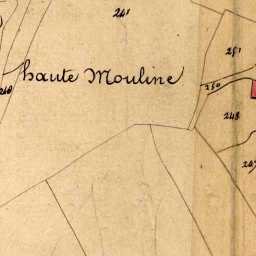 241
251
haute Mouline
250
240
248
247